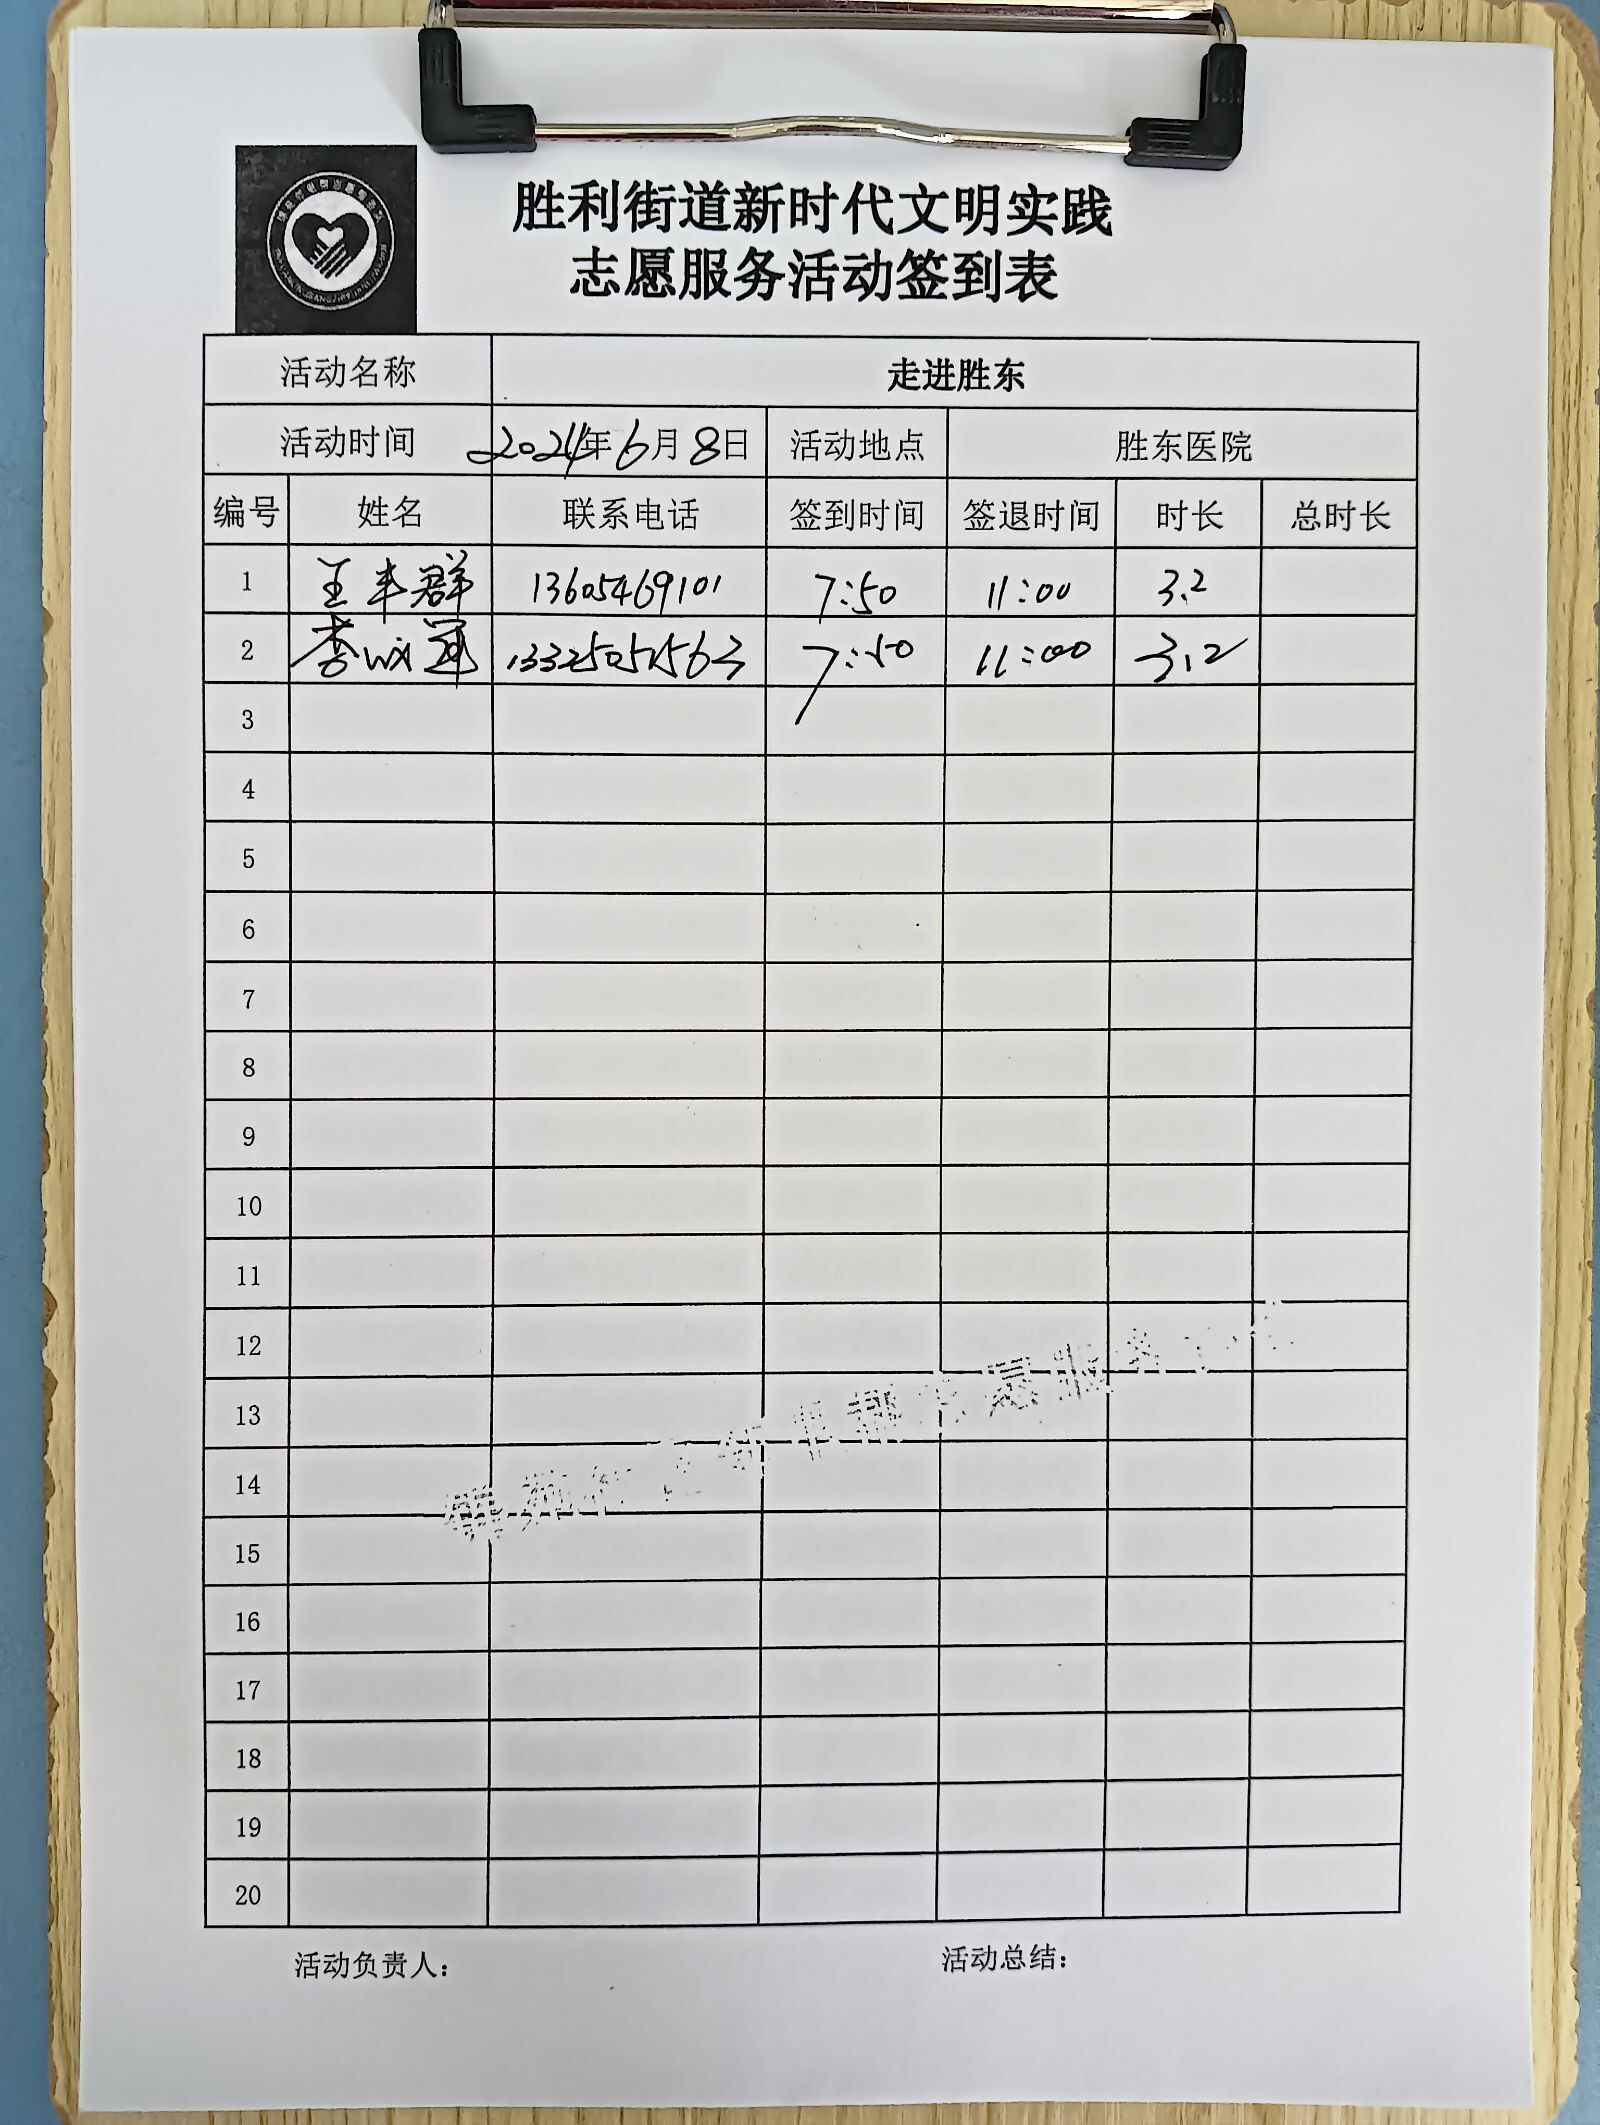 胜利街道新时代文明实践
志愿服务活动签到表
活动名称 走进胜东
活动时间 2024年6月8日 活动地点 胜东医院
编号 姓名 联系电话 签到时间 签退时间 时长 总时长
1 王丰群 13605469101 7:50 11:00 3.2
2 李 13325051563 7:50 11:00 3.2
3
4
5
6
7
8
9
10
11
12
13
14
15
16
17
18
19
20
活动负责人: 活动总结: